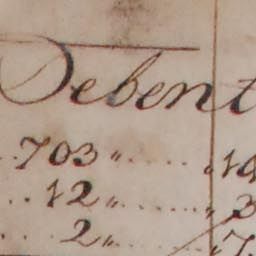 Debent
..703 „ ...... „ 14
.. 12 „ ...... „ 3
.. 2 „ ...... „ 7